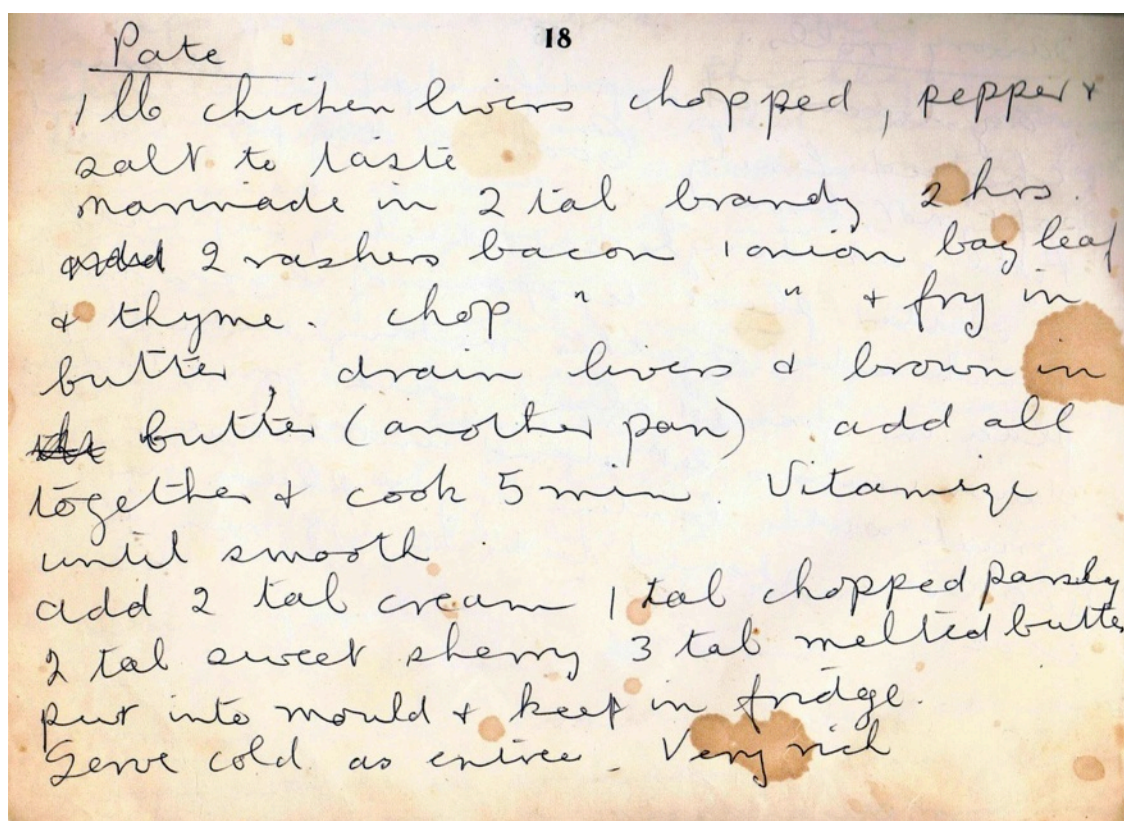 18
Pate
1 lb chicken livers chopped, pepper +
salt to taste
marinade in 2 tab brandy 2 hrs.
2 rashers bacon 1 onion bay leaf
+ thyme. chop " " + fry in
butter, drain livers + brown in
butter (another pan) add all
together + cook 5 min. Vitamize
until smooth.
add 2 tab cream 1 tab chopped parsly
2 tab sweet sherry 3 tab melted butter
put into mould + keep in fridge.
Serve cold as entree. Very rich